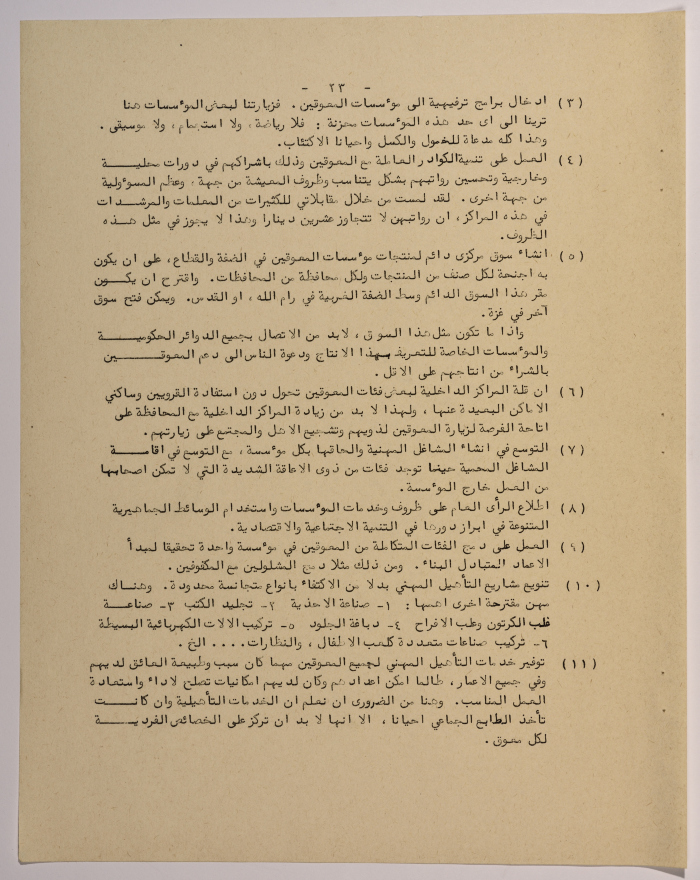 - ٢٣ -
(٣) ادخال برامج ترفيهية الى مؤسسات المعوقين. فزيارتنا لبعض المؤسسات هنا
ترينا الى اى حد هذه المؤسسات محزنة : فلا رياضة، ولا استجمام، ولا موسيقى.
وهذا كله مدعاة للخمول والكسل واحيانا الاكتئاب.
(٤) العمل على تنمية الكوادر العاملة مع المعوقين وذلك باشراكهم في دورات محلية
وخارجية وتحسين رواتبهم بشكل يتناسب وظروف المعيشة من جهة، وعظم المسوؤلية
من جهة اخرى. لقد لمست من خلال مقابلاتي للكثيرات من المعلمات والمرشدات
في هذه المراكز، ان رواتبهن لا تتجاوز عشرين دينارا وهذا لا يجوز في مثل هذه
الظروف.
(٥) انشاء سوق مركزى دائم لمنتجات مؤسسات المعوقين في الضفة والقطاع، على ان يكون
به اجنحة لكل صنف من المنتجات ولكل محافظة من المحافظات. واقترح ان يكون
مقر هذا السوق الدائم وسط الضفة الغربية في رام الله، او القدس. ويمكن فتح سوق
آخر في غزة.
واذا ما تكون مثل هذا السوق، لابد من الاتصال بجميع الدوائر الحكومية
والمؤسسات الخاصة للتعريف بهذا الانتاج ودعوة الناس الى دعم المعوقين
بالشراء من انتاجهم على الاقل.
(٦) ان قلة المراكز الداخلية لبعض فئات المعوقين تحول دون استفادة القرويين وساكني
الاماكن البعيدة عنها، ولهذا لا بد من زيادة المراكز الداخلية مع المحافظة على
اتاحة الفرصة لزيارة المعوقين لذويهم وتشجيع الاهل والمجتمع على زيارتهم.
(٧) التوسع في انشاء المشاغل المهنية والحاقها بكل مؤسسة، مع التوسع في اقامة
المشاغل المحمية حيثما توجد فئات من ذوى الاعاقة الشديدة التي لا تمكن اصحابها
من العمل خارج المؤسسة.
(٨) اطلاع الرأى العام على ظروف وخدمات المؤسسات واستخدام الوسائط الجماهيرية
المتنوعة في ابراز دورها في التنمية الاجتماعية والاقتصادية.
(٩) العمل على دمج الفئات المتكاملة من المعوقين في مؤسسة واحدة تحقيقا لمبدأ
الاعماد المتبادل البناء. ومن ذلك مثلا دمج المشلولين مع المكفوفين.
(١٠) تنويع مشاريع التأهيل المهني بدلا من الاكتفاء بانواع متجانسة محدودة. وهناك
مهن مقترحة اخرى اهمها: ١- صناعة الاحذية ٢- تجليد الكتب ٣- صناعة
قلب الكرتون وعلب الافراح ٤- دباغة الجلود ٥- تركيب الالات الكهربائية البسيطة
٦- تركيب صناعات متعددة كلعب الاطفال، والنظارات.... الخ.
(١١) توفير خدمات التأهيل المهني لجميع المعوقين مهما كان سبب وطبيعة العائق لديهم
وفي جميع الاعمار، طالما امكن اعدادهم وكان لديهم امكانيات تصلح لاداء واستعادة
العمل المناسب. وهنا من الضرورى ان نعلم ان الخدمات التأهيلية وان كانت
تأخذ الطابع الجماعي احيانا، الا انها لا بد ان تركز على الخصائص الفردية
لكل معوق.